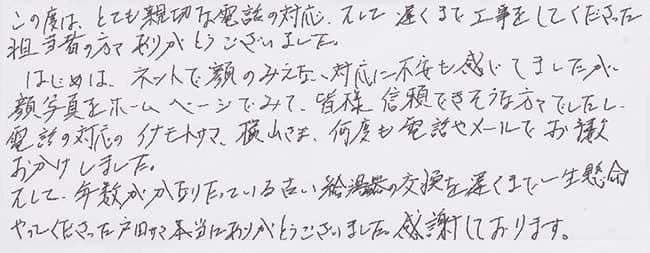 この度は、とても親切な電話の対応、そして遅くまで工事をしてくださった
担当者の方々ありがとうございました。
はじめは、ネットで顔のみえない対応に不安も感じてましたが、
顔写真をホームページでみて、皆様信頼できそうな方々でしたし、
電話の対応のイナモトサマ、横山さま、何度も電話やメールでお手数
おかけしました。
そして、年数がかなりたっている古い給湯器の交換を遅くまで一生懸命
やってくださった戸田サマ本当にありがとうございました。感謝しております。